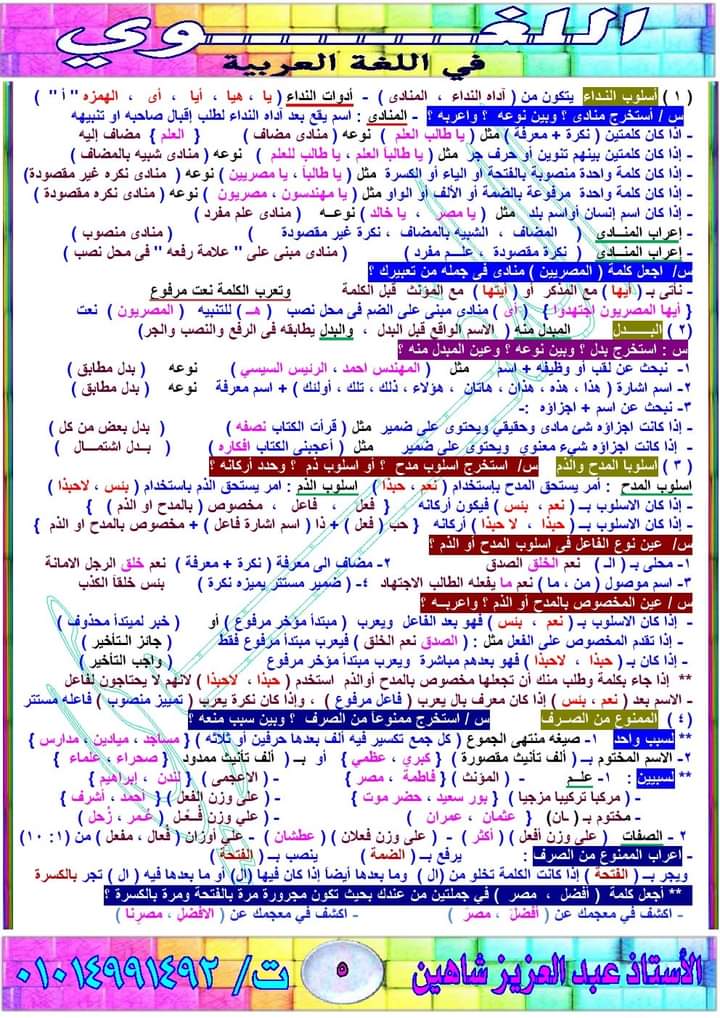 اللغـــــــوي
في اللغة العربية
( ١ ) أسلوب النـداء يتكون من ( أداه النداء ، المنادى ) - أدوات النداء ( يا ، هيا ، أيا ، أى ، الهمزه " أ " )
س / أستخرج منادى ؟ وبين نوعه ؟ واعربه ؟ - المنادى : اسم يقع بعد أداه النداء لطلب إقبال صاحبه او تنبيهه
- إذا كان كلمتين ( نكرة + معرفة ) مثل ( يا طالب العلم ) نوعه ( منادى مضاف ) { العلم } مضاف إليه
- إذا كان كلمتين بينهم تنوين أو حرف جر مثل ( يا طالباً العلم ، يا طالب للعلم ) نوعه ( منادى شبيه بالمضاف )
- إذا كان كلمة واحدة منصوبة بالفتحة أو الياء أو الكسرة مثل ( يا طالباً ، يا مصريين ) نوعه ( منادى نكره غير مقصودة)
- إذا كان كلمة واحدة مرفوعة بالضمة أو الألف أو الواو مثل ( يا مهندسون ، مصريون ) نوعه ( منادى نكره مقصودة )
- إذا كان اسم إنسان أواسم بلد مثل ( يا مصر ، يا خالد ) نوعـــه ( منادى علم مفرد )
- إعراب المنـــادى ( المضاف ، الشبيه بالمضاف ، نكرة غير مقصودة ) ( منادى منصوب )
- إعراب المنـــادى ( نكرة مقصودة ، علـــم مفرد ) ( منادى مبنى على " علامة رفعه " فى محل نصب )
س/ اجعل كلمة ( المصريين ) منادى فى جمله من تعبيرك ؟
- نأتى بـ ( أيها ) مع المذكر أو ( أيتها ) مع المؤنث قبل الكلمة وتعرب الكلمة نعت مرفوع
{ أيها المصريون اجتهدوا } ( أى ) منادى مبنى على الضم فى محل نصب ( هـ ) للتنبيه ( المصريون ) نعت
( ٢ ) البـــــدل المبدل منه ( الاسم الواقع قبل البدل ، والبدل يطابقه فى الرفع والنصب والجر)
س : أستخرج بدل ؟ وبين نوعه ؟ وعين المبدل منه ؟
١- نبحث عن لقب أو وظيفه + اسم مثل ( المهندس احمد ، الرئيس السيسي ) نوعه ( بدل مطابق )
٢- اسم اشارة ( هذا ، هذه ، هذان ، هاتان ، هؤلاء ، ذلك ، تلك ، أولئك ) + اسم معرفة نوعه ( بدل مطابق )
٣- نبحث عن اسم + اجزاؤه :-
- إذا كانت اجزاؤه شئ مادى وحقيقي ويحتوى على ضمير مثل ( قرأت الكتاب نصفه ) ( بدل بعض من كل )
- إذا كانت اجزاؤه شيء معنوي ويحتوى على ضمير مثل ( أعجبنى الكتاب افكاره ) ( بــدل اشتمـــال )
( ٣ ) اسلوبا المدح والذم س/ استخرج اسلوب مدح ؟ أو اسلوب ذم ؟ وحدد أركانه ؟
اسلوب المدح : أمر يستحق المدح بإستخدام ( نعم ، حبذا ) اسلوب الذم : امر يستحق الذم باستخدام ( بئس ، لاحبذا )
- إذا كان الاسلوب بـ ( نعم ، بئس ) فيكون أركانه { فعل ، فاعل ، مخصوص ( بالمدح او الذم ) }
- إذا كان الاسلوب بـ ( حبذا ، لا حبذا ) أركانه { حب ( فعل ) + ذا ( اسم اشارة فاعل ) + مخصوص بالمدح او الذم }
س/ عين نوع الفاعل فى اسلوب المدح أو الذم ؟
١- محلى بـ ( الـ ) نعم الخلق الصدق ٢- مضاف الى معرفة ( نكرة + معرفة ) نعم خلق الرجل الامانة
٣- اسم موصول ( من ، ما ) نعم ما يفعله الطالب الاجتهاد ٤- ( ضمير مستتر يميزه نكرة ) بئس خلقاً الكذب
س / عين المخصوص بالمدح أو الذم ؟ واعربــه ؟
- إذا كان الاسلوب بـ ( نعم ، بئس ) فهو بعد الفاعل ويعرب ( مبتدأ مؤخر مرفوع ) أو ( خبر لمبتدأ محذوف )
- إذا تقدم المخصوص على الفعل مثل : ( الصدق نعم الخلق ) فيعرب مبتدأ مرفوع فقط ( جائز الـتأخير )
- إذا كان بـ ( حبذا ، لاحبذا ) فهو بعدهم مباشرة ويعرب مبتدأ مؤخر مرفوع ( واجب التأخير )
** إذا جاء بكلمة وطلب منك أن تجعلها مخصوص بالمدح أوالذم استخدم ( حبذا ، لاحبذا ) لانهم لا يحتاجون لفاعل
- الاسم بعد ( نعم ، بئس ) إذا كان معرف بال يعرب ( فاعل مرفوع ) ، وإذا كان نكرة يعرب ( تمييز منصوب ) فاعله مستتر
( ٤ ) الممنوع من الصــرف س / استخرج ممنوعاً من الصرف ؟ وبين سبب منعه ؟
** لسبب واحد ١- صيغه منتهى الجموع ( كل جمع تكسير فيه ألف بعدها حرفين أو ثلاثه ) { مساجد ، ميادين ، مدارس }
٢- الاسم المختوم بـ ( ألف تأنيث مقصورة ) { كبرى ، عظمي } أو بـ ( ألف تأنيث ممدود { صحراء ، علماء }
** لسببين : ١- علـــم - ( المؤنث ) { فاطمة ، مصر } - ( الاعجمى ) { لندن ، إبراهيم }
- ( مركبا تركيبا مزجيا ) { بور سعيد ، حضر موت } - ( على وزن الفعل ) { أحمد ، أشرف }
- مختوم بـ ( ـان) { عثمان ، عمران } - ( على وزن فُـعَـل ) { عُـمر ، زُحل }
٢ - الصفات ( على وزن أفعل ) ( أكثر ) - ( على وزن فعلان ) ( عطشان ) - على أوزان ( فُعال ، مفعل ) من (١: ١٠)
- اعراب الممنوع من الصرف : يرفع بـ ( الضمة ) ينصب بـ ( الفتحة )
ويجر بـ ( الفتحة ) إذا كانت الكلمة تخلو من (ال) وما بعدها وأيضاً إذا كان فيها (ال) أو ما بعدها فيه ( ال ) تجر بالكسرة
** أجعل كلمة ( أفضل ، مصر ) في جملتين من عندك بحيث تكون مجرورة مرة بالفتحة ومرة بالكسرة ؟
- اكشف في معجمك عن ( أفضلَ ، مصرَ ) - اكشف في معجمك عن ( الافضلِ ، مصرِنا )
الأستاذ عبد العزيز شاهين
٥
ت/ ٠١٠١٤٩٩١٤٩٢